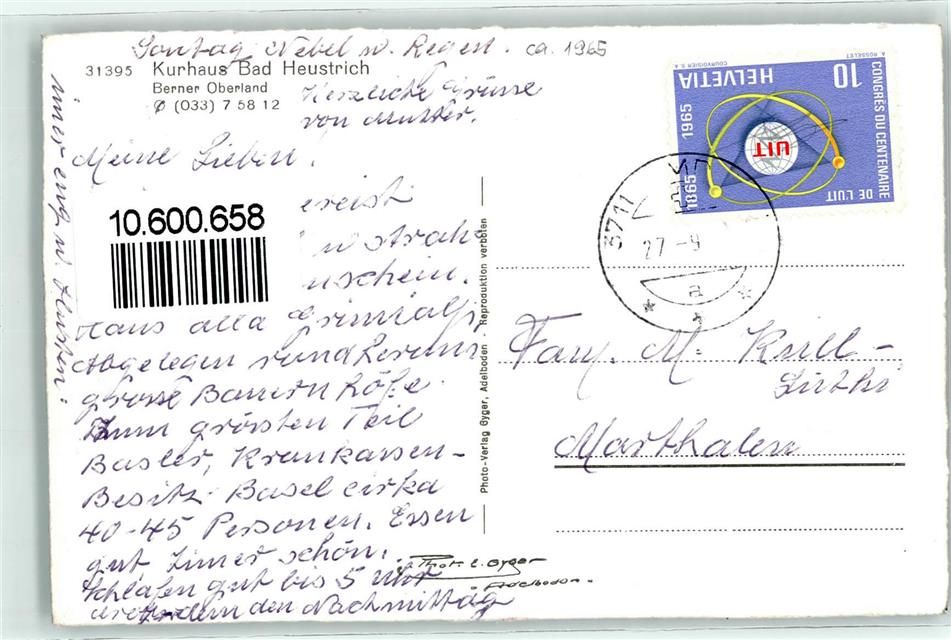 Sontag Nebel w. Regen. ca. 1965
31395 Kurhaus Bad Heustrich
Berner Oberland
✆ (033) 7 58 12
Herzliche Grüsse
von Mutter.
Meine Lieben.
10.600.658
ereist
strah
nschein.
Haus alla
Abgelegen rund herum
grosse Bauern höfe.
Zum grösten Teil
Basler, Krankassen-
Besitz Basel cirka
40-45 Personen. Essen
gut, Zimer schön.
Schlafen gut bis 5 Uhr
den Nachmittag
Photo-Verlag Gyger, Adelboden - Reproduktion verboten
Phot. E. Gyger
Adelboden.
HELVETIA 10
COURVOISIER S.A. A. ROSSELET
CONGRÈS DU CENTENAIRE
DE L'UIT
1865 1965
UIT
3711
27 -9
a
Fam. M.
Marthalen